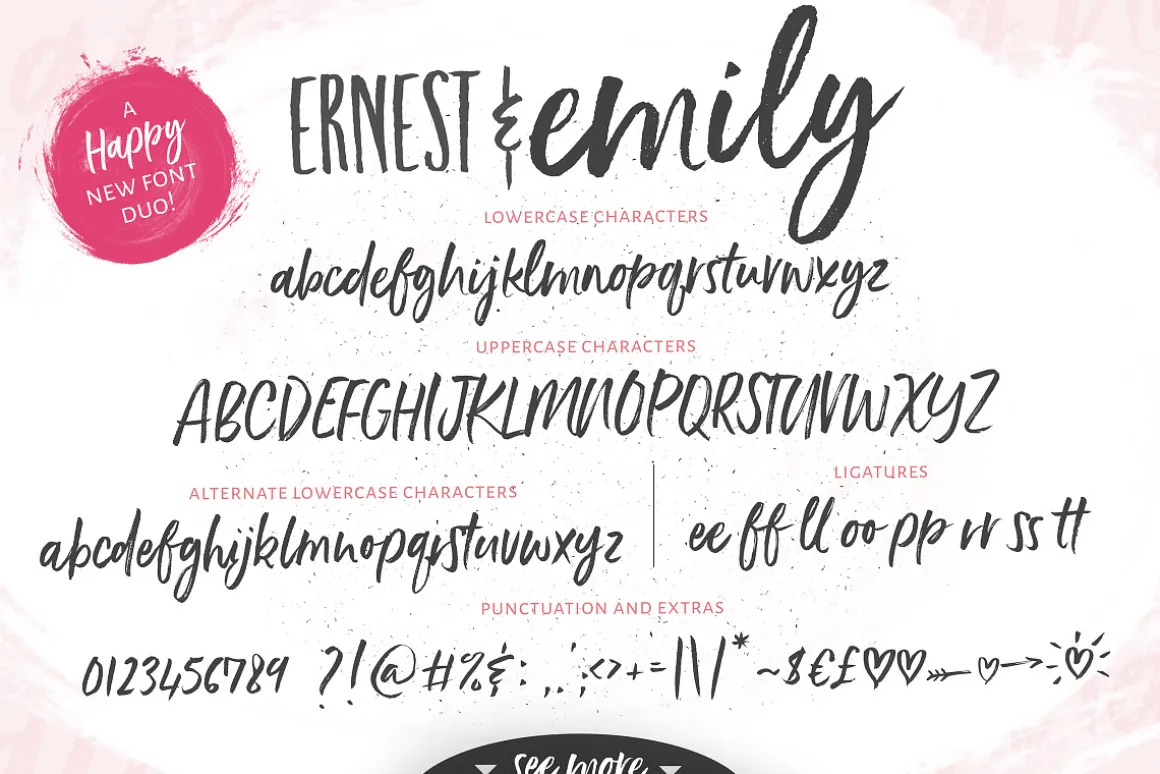 ERNEST & emily
A
Happy
NEW FONT
DUO!
LOWERCASE CHARACTERS
abcdefghijklmnopqrstuvwxyz
UPPERCASE CHARACTERS
ABCDEFGHIJKLMNOPQRSTUVWXYZ
ALTERNATE LOWERCASE CHARACTERS
abcdefghijklmnopqrstuvwxyz
LIGATURES
ee ff ll oo pp rr ss tt
PUNCTUATION AND EXTRAS
0123456789 ?!@#%&:,.;<>+=|\|/*~$€£♡♡➳♡→♡
see more